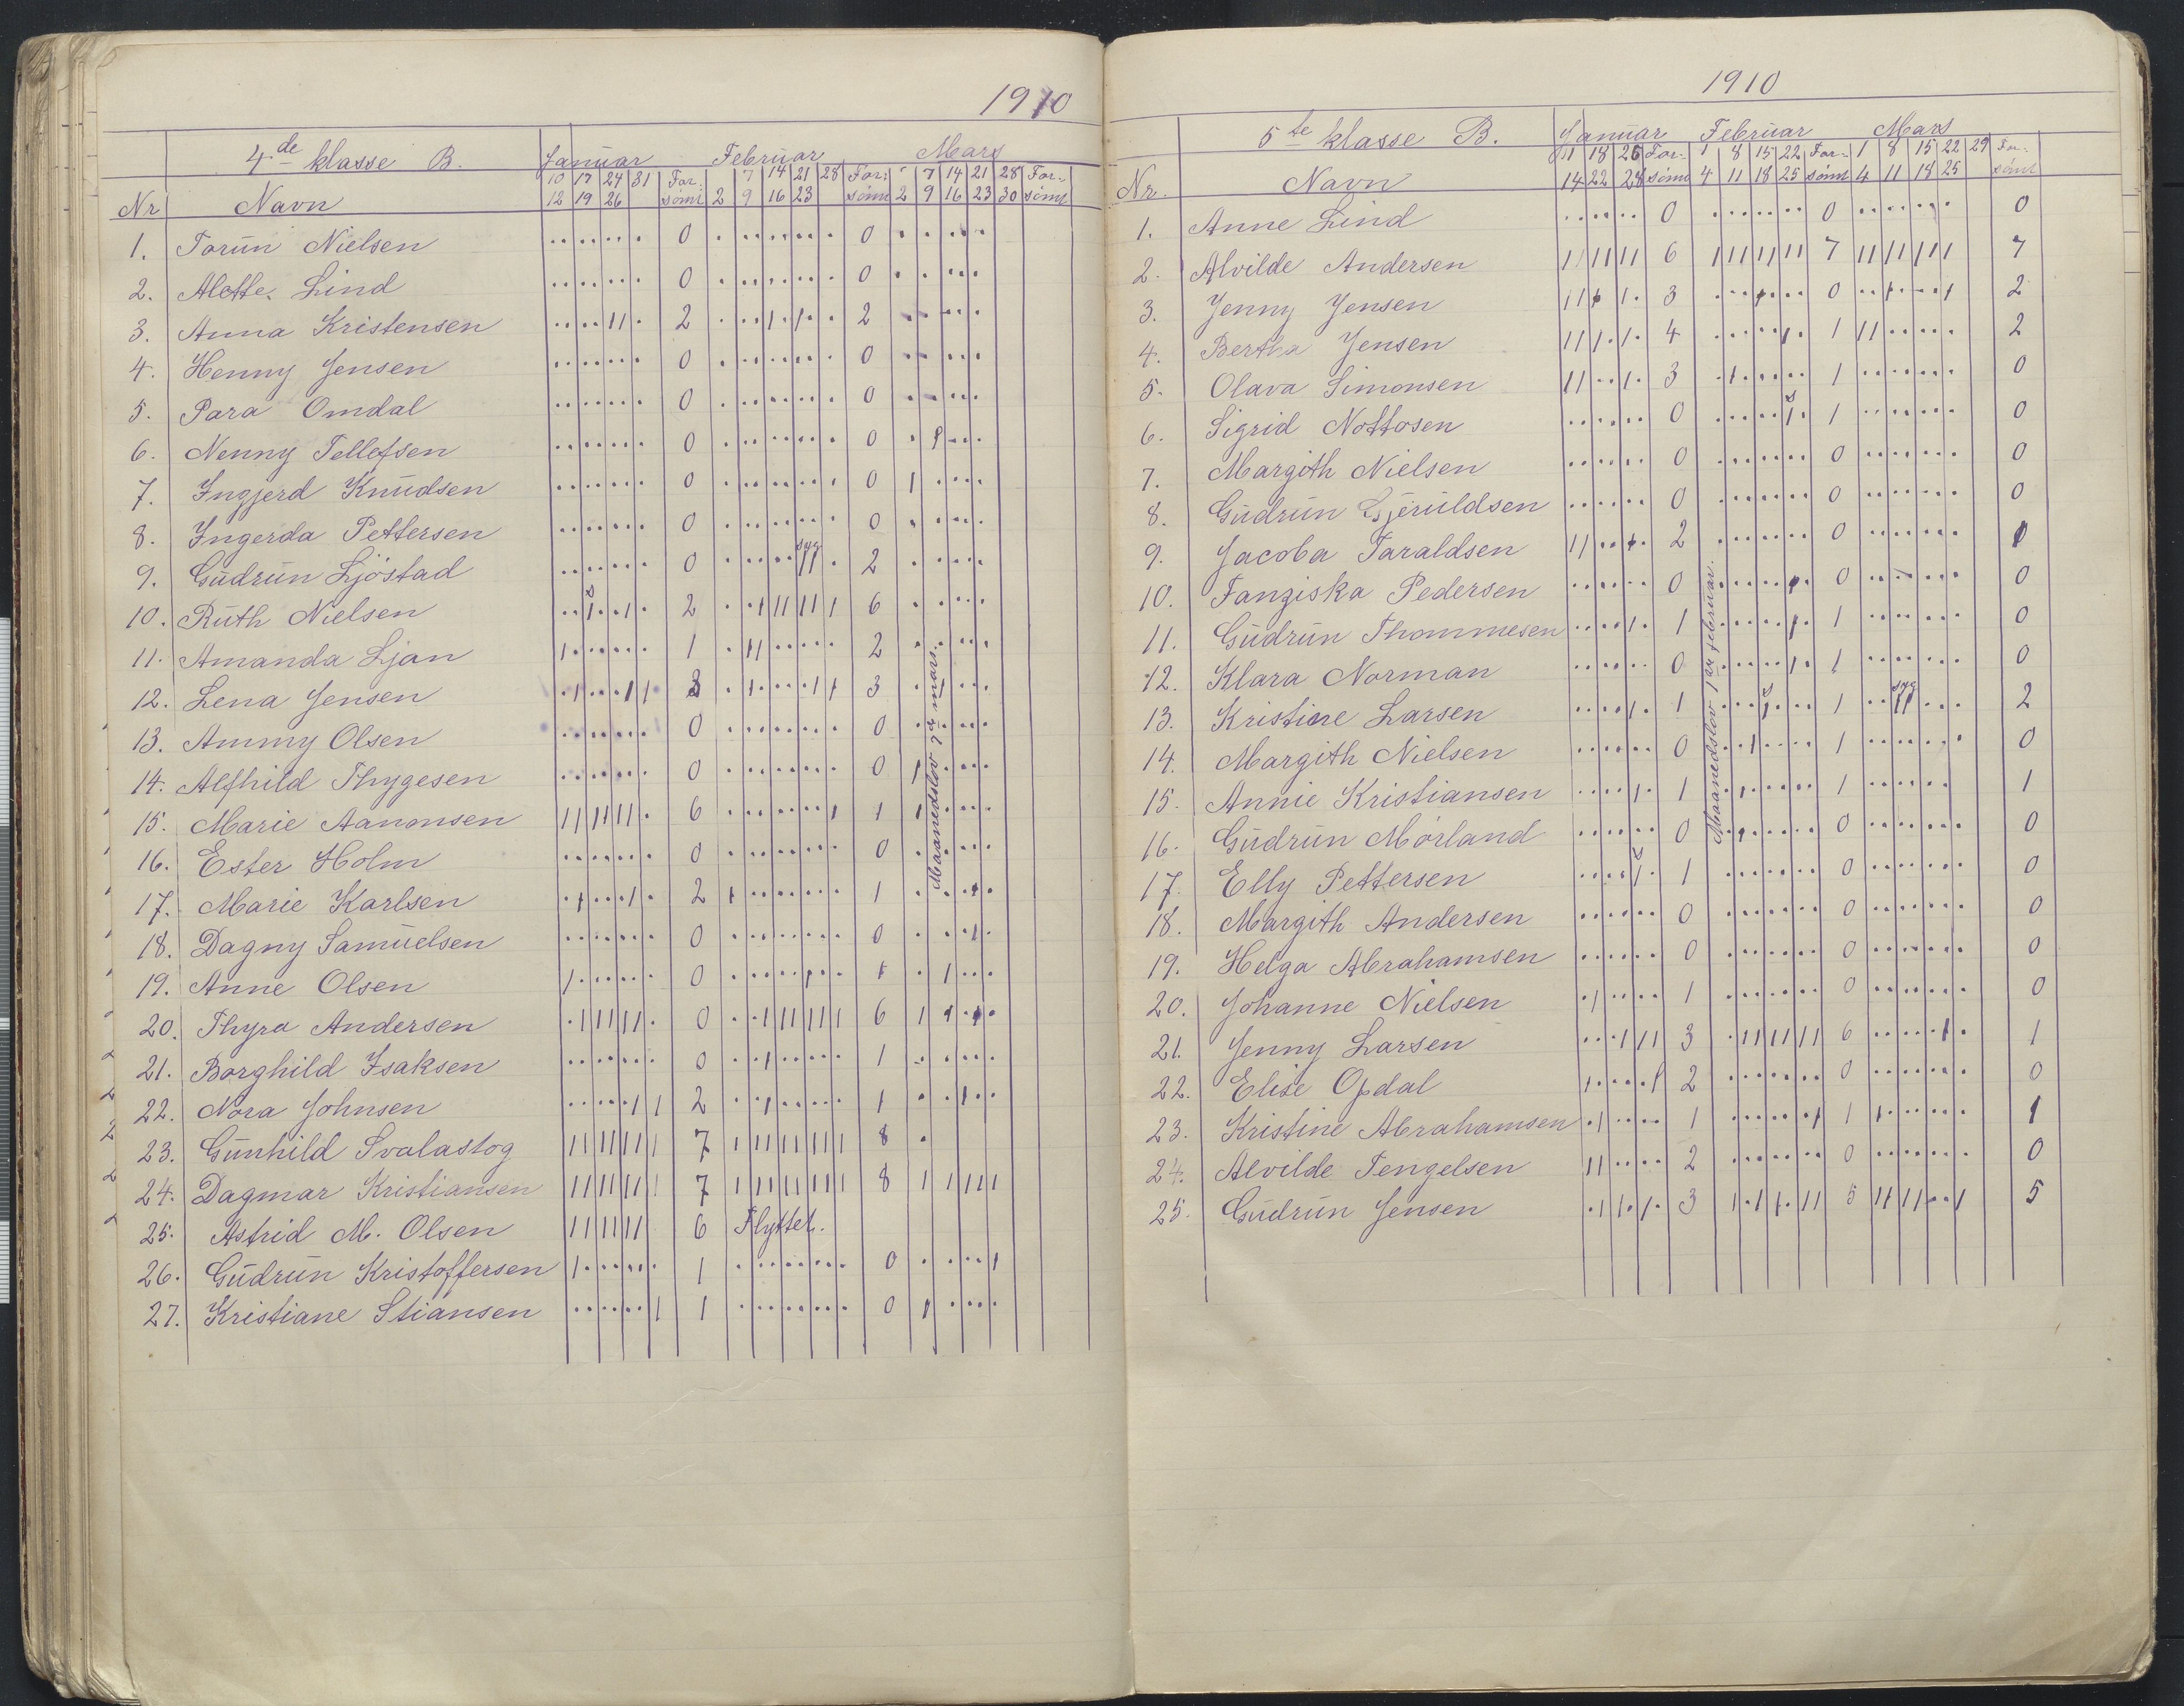 1910
4de klasse B. Januar Februar Mars
10 17 24 31 For- 7 14 21 28 For- 7 14 21 28 For-
Nr Navn 12 19 26 sømt 2 9 16 23 sømt 2 9 16 23 30 sømt
1. Torun Nielsen 0 0
2. Alette Lind 0 0
3. Anna Kristensen 2 2
4. Henny Jensen 0 0
5. Para Omdal 0 0
6. Nenny Tellefsen 0 0
7. Ingjerd Knudsen 0 0
8. Ingerda Pettersen 0 0
9. Gudrun Ljøstad 0 syg 2
10. Ruth Nielsen 2 6
11. Amanda Ljan 1 2
12. Lena Jensen 3 3
13. Ammy Olsen 0 0
14. Alfhild Thygesen 0 0
15. Marie Aanonsen 6 1
16. Ester Holm 0 0
17. Marie Karlsen 2 1
18. Dagny Samuelsen 0 0
19. Anne Olsen 0 1
20. Thyra Andersen 0 6
21. Borghild Isaksen 0 1
22. Nora Johnsen 2 1
23. Gunhild Svalastog 7 8
24. Dagmar Kristiansen 7 8
25. Astrid M. Olsen 6 Flyttet.
26. Gudrun Kristoffersen 1 0
27. Kristiane Stiansen 1 0
Maanedslov 7de mars.
1910
5te klasse B. Januar Februar Mars
11 18 26 For- 1 8 15 22 For- 1 8 15 22 29 For-
Nr. Navn 14 22 28 sømt 4 11 18 25 sømt 4 11 18 25 sømt
1. Anne Lind 0 0 0
2. Alvilde Andersen 6 7 7
3. Jenny Jensen 3 0 2
4. Bertha Jensen 4 1 2
5. Olava Simonsen 3 1 0
6. Sigrid Nottosen 0 1 0
7. Margith Nielsen 0 0 0
8. Gudrun Gjeruldsen 0 0 0
9. Jacoba Taraldsen 2 0 1
10. Fanziska Pedersen 0 0 0
11. Gudrun Thommesen 1 1 0
12. Klara Norman 0 1 0
13. Kristine Larsen 1 1 syg 2
14. Margith Nielsen 0 1 0
15. Annie Kristiansen 1 1 1
16. Gudrun Mørland 0 0 0
17. Elly Pettersen 1 0 0
18. Margith Andersen 0 0 0
19. Helga Abrahamsen 0 0 0
20. Johanne Nielsen 1 0 0
21. Jenny Larsen 3 6 1
22. Elise Opdal 2 0 0
23. Kristine Abrahamsen 1 1 1
24. Alvilde Tengelsen 2 0 0
25. Gudrun Jensen 3 5 5
Maanedslov 1ste februar.